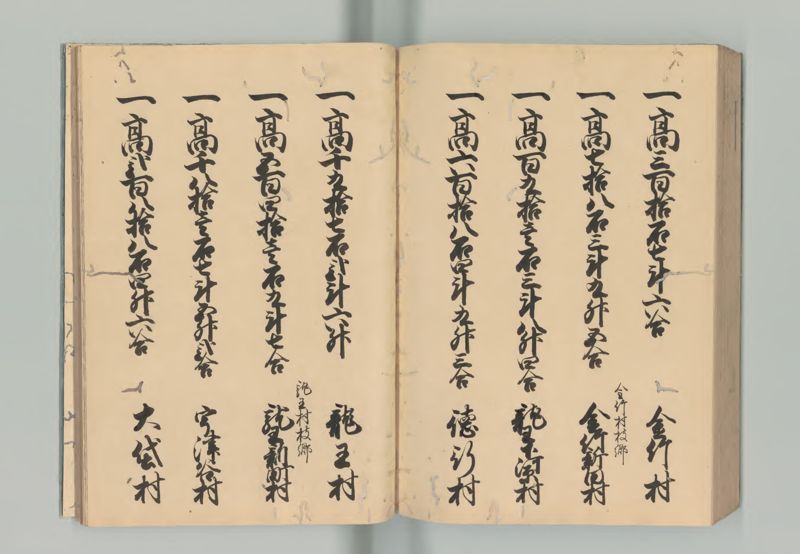 一高三百拾石七斗六合 金竹村
一高七拾八石三斗九升五合
金竹村枝郷
金竹新田村
一高百九拾壱石三斗八升四合 龍王下河原村
一高六百拾八石四斗九升三合 徳行村
一高千九拾七石弐斗六升 龍王村
一高五百四拾壱石九斗七合
龍王村枝郷
龍王新町村
一高千八拾壱石七斗五升弐合 宇津谷村
一高弐百八拾八石四升六合 大袋村